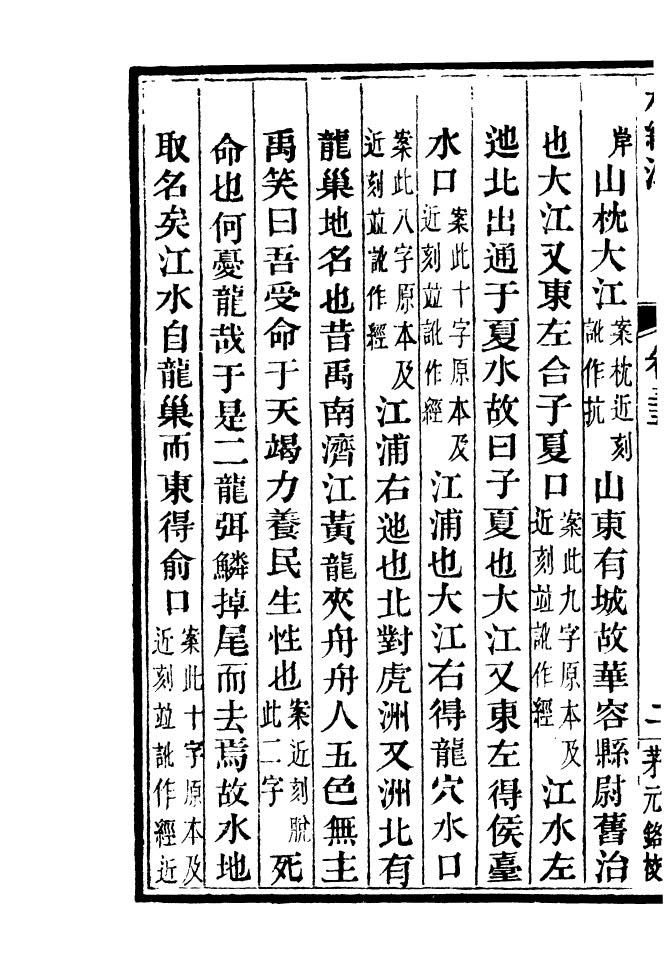 水經注 卷三十五 二 茅元銘校
岸山枕大江案枕近刻訛作抗山東有城故華容縣尉舊治
也大江又東左合子夏口案此九字原本及近刻並訛作經江水左
迆北出通于夏水故曰子夏也大江又東左得侯臺
水口案此十字原本及近刻並訛作經江浦也大江右得龍穴水口
案此八字原本及近刻並訛作經江浦右迆也北對虎洲又洲北有
龍巢地名也昔禹南濟江黃龍夾舟舟人五色無主
禹笑曰吾受命于天竭力養民生性也案近刻脫此二字死
命也何憂龍哉于是二龍弭鱗掉尾而去焉故水地
取名矣江水自龍巢而東得俞口案此十字原本及近刻並訛作經近